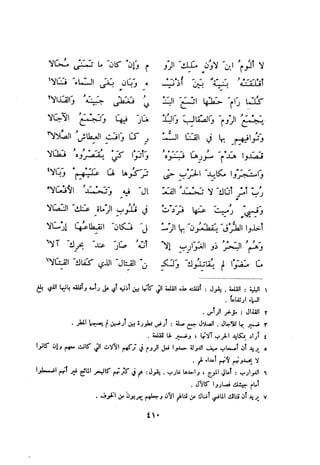 لا أَلُومُ ابْنَ لاوُنٍ مَلِكَ الرُّو مِ وَإِنْ كانَ ما تَمَنَّى مُحَالا
أَقْلَقَتْهُ بَنِيَّةٌ بَيْنَ أُذْنَيْـ ـهِ وَبَانٍ بَغَى السَّماءَ فَنَالا١
كُلَّما رَامَ حَطَّها اتَّسَعَ البَنْـ ـيُ فَغَطَّى جَبِينَهُ وَالقَذَالا٢
يَجْمَعُ الرُّومَ وَالصَّقالِبَ وَالبُلْـ ـغَارَ فِيها وَتَجْمَعُ الآجَالا
وَتُوافِيهِمِ بِها في القَنا السُّمْـ ـرِ كَما وَافَتِ العِطاشُ الصِّلالا٣
قَصَدُوا هَدْمَ سُورِها فَبَنَوْهُ وَأَتَوْا كَيْ يُقَصِّرُوهُ فَطَالا
وَاسْتَجَرُّوا مَكايِدَ الحَرْبِ حَتّى تَرَكُوها لَها عَلَيْهِمْ وَبَالا٤
رُبَّ أَمْرٍ أَتاكَ لا تَحْمَدُ الفَعّـ ـالَ فِيهِ وَتَحْمَدُ الأَفْعَالا٥
وَقِسِيٍّ رُمِيتَ عَنْها فَرَدَّتْ في قُلُوبِ الرُّماةِ عَنْكَ النِّصَالا
أَخَذُوا الطُّرْقَ يَقْطَعُونَ بِها الرُّسْـ ـلَ فَكانَ انْقِطاعُها إِرْسَالا
وَهُمُ البَحْرُ ذُو الغَوَارِبِ إِلاّ أَنَّهُ صَارَ عِنْدَ بَحْرِكَ آلا٦
ما مَضَوْا لَمْ يُقَاتِلُوكَ وَلَكِـ ـنَّ القِتالَ الَّذي كَفاكَ القِتَالا٧
١ البنية : القلعة . يقول : أقلقته هذه القلعة التي كأنها بين أذنيه أي على رأسه وأقلقه بانيها الذي بلغ
السماء ارتفاعاً .
٢ القذال : مؤخر الرأس .
٣ ضمير بها للآجال . الصلال جمع صلة : أرض ممطورة بين أرضين لم يصبهما المطر .
٤ أراد بمكايد الحرب آلاتها ، وضمير لها للقلعة .
٥ يريد أن أصحاب سيف الدولة حمدوا فعل الروم في تركهم الآلات التي كانت معهم وإن كانوا
لا يحمدونهم لأنهم أعداء لهم .
٦ الغوارب : أعالي الموج ، واحدها غارب . يقول : هم في كثرتهم كالبحر المائج غير أنهم اضمحلوا
أمام جيشك فصاروا كالآل .
٧ يريد أن قتالك الماضي أغناك عن قتالهم الآن وجعلهم يهربون من الخوف .
٤١٠